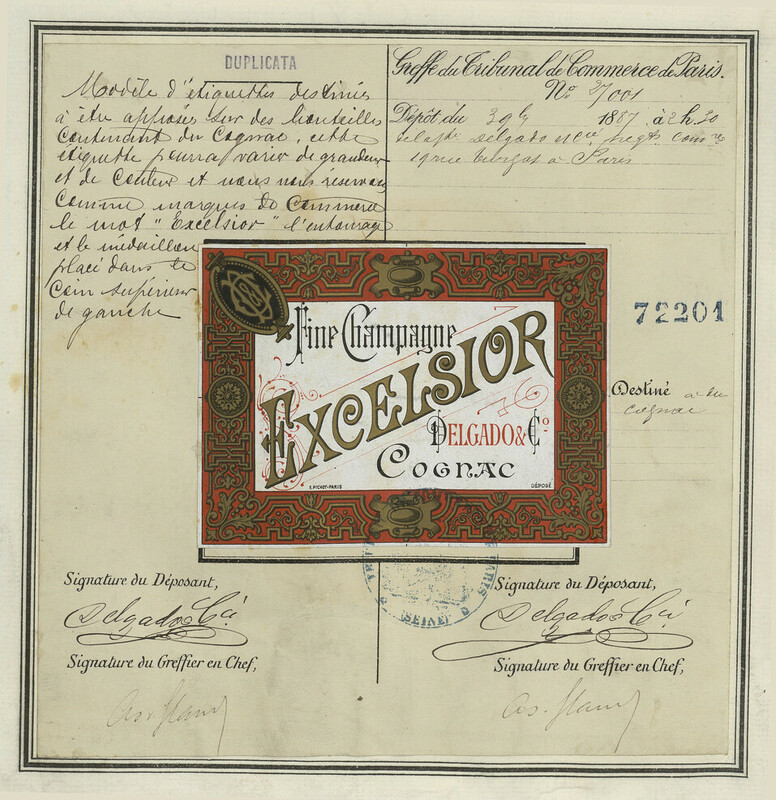 DUPLICATA
Modèle d'étiquettes destinées
à être apposées sur des bouteilles
contenant du Cognac, cette
étiquette pourra varier de grandeur
et de couleur et nous nous réservons
comme marques de Commerce
le mot "Excelsior" l'entourage
et le médaillon
placé dans le
Coin supérieur
de gauche
Greffe du Tribunal de Commerce de Paris.
No 27001
Dépôt du 1887 à 2 h. 30
Delgado negts
19 rue à Paris
72201
Destiné à du
cognac
Fine Champagne
EXCELSIOR
DELGADO & Co
COGNAC
E. PICHOT-PARIS
DÉPOSÉ
PARIS
(SEINE)
Signature du Déposant,
Delgado & Cie
Signature du Greffier en Chef,
Signature du Déposant,
Delgado & Cie
Signature du Greffier en Chef,